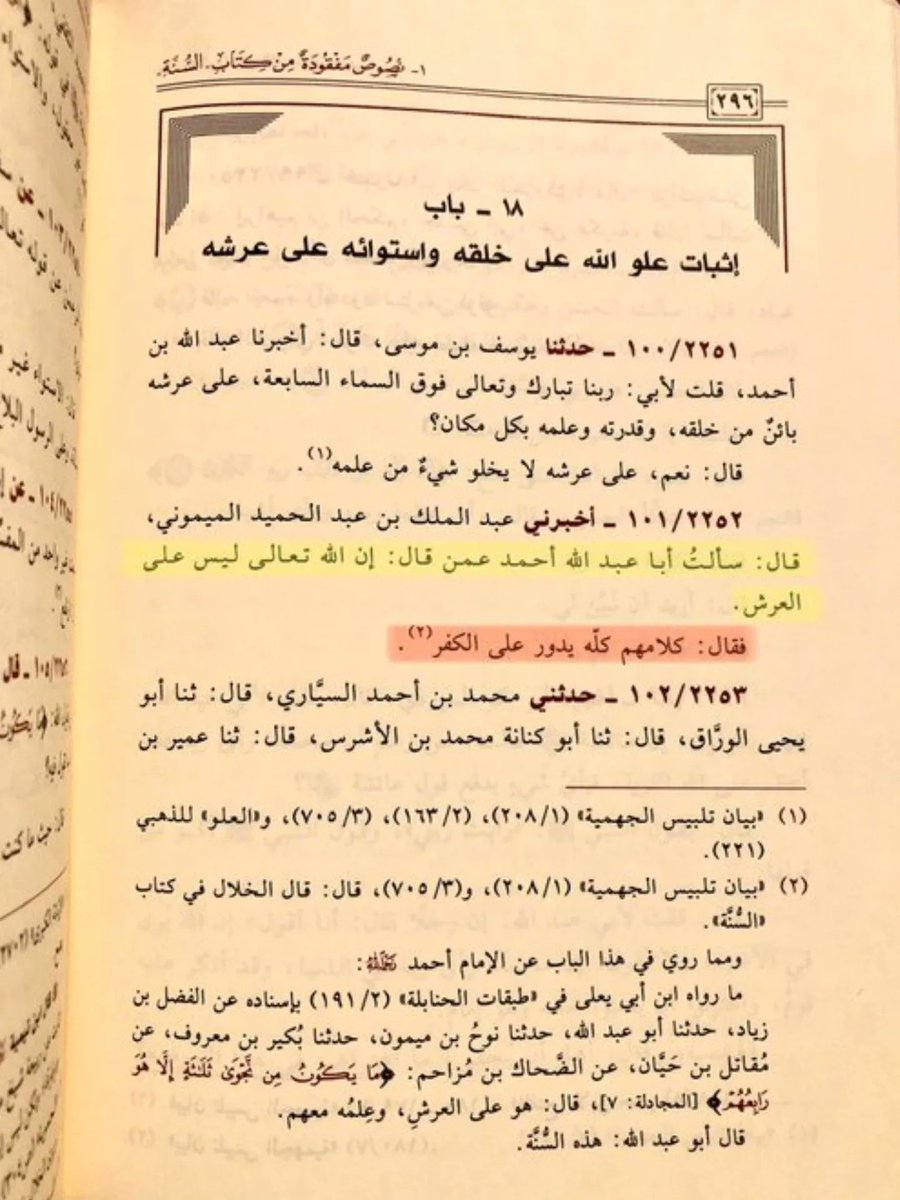 ١- نُصُوصٌ مَفْقُودَةٌ مِنْ كِتَابِ السُّنَّةِ.
٢٩٦
١٨ ـ باب
إثبات علو الله على خلقه واستوائه على عرشه
١٠٠/٢٢٥١ ـ حدثنا يوسف بن موسى، قال: أخبرنا عبد الله بن
أحمد، قلت لأبي: ربنا تبارك وتعالى فوق السماء السابعة، على عرشه
بائنٌ من خلقه، وقدرته وعلمه بكل مكان؟
قال: نعم، على عرشه لا يخلو شيءٌ من علمه(١).
١٠١/٢٢٥٢ ـ أخبرني عبد الملك بن عبد الحميد الميموني،
قال: سألتُ أبا عبد الله أحمد عمن قال: إن الله تعالى ليس على
العرش.
فقال: كلامهم كلّه يدور على الكفر(٢).
١٠٢/٢٢٥٣ ـ حدثني محمد بن أحمد السيَّاري، قال: ثنا أبو
يحيى الورَّاق، قال: ثنا أبو كنانة محمد بن الأشرس، قال: ثنا عمير بن
(١) «بيان تلبيس الجهمية» (٢٠٨/١)، (١٦٣/٢)، (٧٠٥/٣)، و«العلو» للذهبي
(٢٢١).
(٢) «بيان تلبيس الجهمية» (٢٠٨/١)، و(٧٠٥/٣)، قال: قال الخلال في كتاب
«السُّنَّة».
ومما روي في هذا الباب عن الإمام أحمد رَحِمَهُ اللهُ:
ما رواه ابن أبي يعلى في «طبقات الحنابلة» (١٩١/٢) بإسناده عن الفضل بن
زياد، حدثنا أبو عبد الله، حدثنا نوحُ بن ميمون، حدثنا بُكير بن معروف، عن
مُقاتل بن حَيَّان، عن الضَّحاك بن مُزاحم: ﴿مَا يَكُونُ مِن نَّجْوَىٰ ثَلَٰثَةٍ إِلَّا هُوَ
رَابِعُهُمْ﴾ [المجادلة: ٧]، قال: هو على العرشِ، وعِلمُه معهم.
قال أبو عبد الله: هذه السُّنَّة.